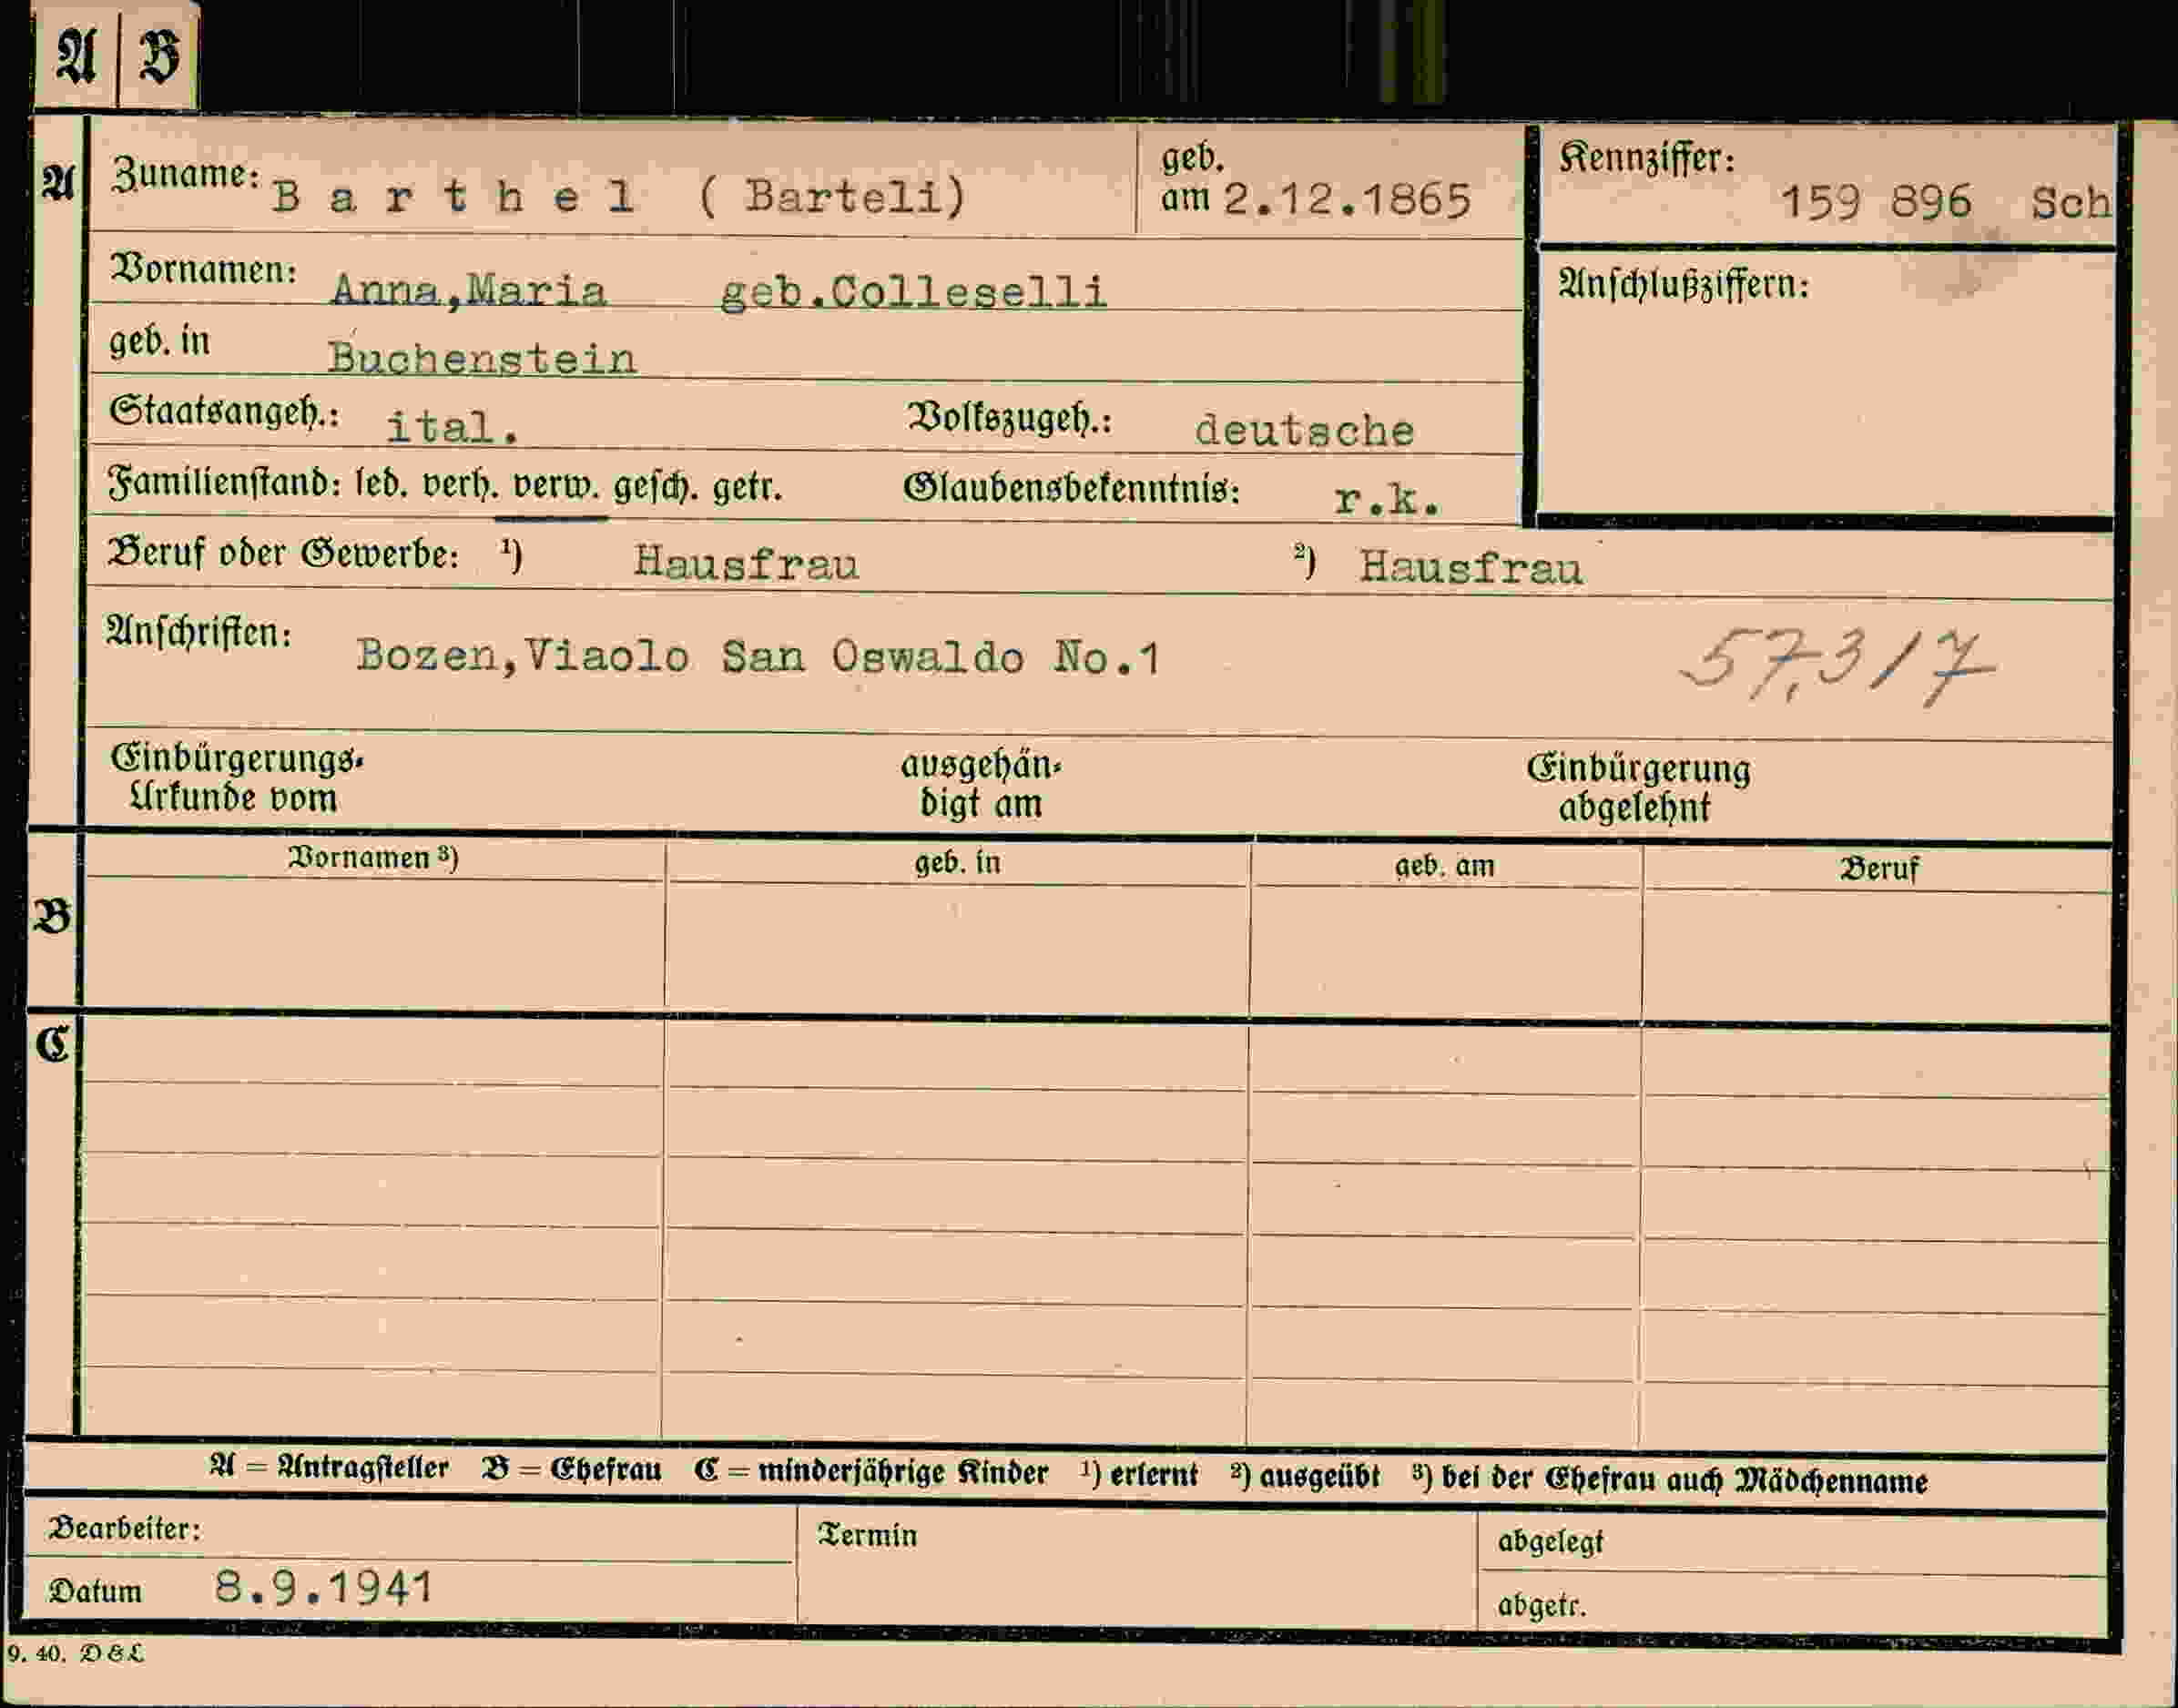 A B
A Zuname: Barthel (Barteli) geb. am 2.12.1865 Kennziffer: 159 896 Sch
Vornamen: Anna,Maria geb.Colleselli Anschlußziffern:
geb. in Buchenstein
Staatsangeh.: ital. Volkszugeh.: deutsche
Familienstand: led. verh. verw. gesch. getr. Glaubensbekenntnis: r.k.
Beruf oder Gewerbe: ¹) Hausfrau ²) Hausfrau
Anschriften: Bozen,Viaolo San Oswaldo No.1 57.317
Einbürgerungs- ausgehän- Einbürgerung
Urkunde vom digt am abgelehnt
Vornamen ³) geb. in geb. am Beruf
B
C
A = Antragsteller B = Ehefrau C = minderjährige Kinder ¹) erlernt ²) ausgeübt ³) bei der Ehefrau auch Mädchenname
Bearbeiter: Termin abgelegt
Datum 8.9.1941 abgetr.
9. 40. D&L